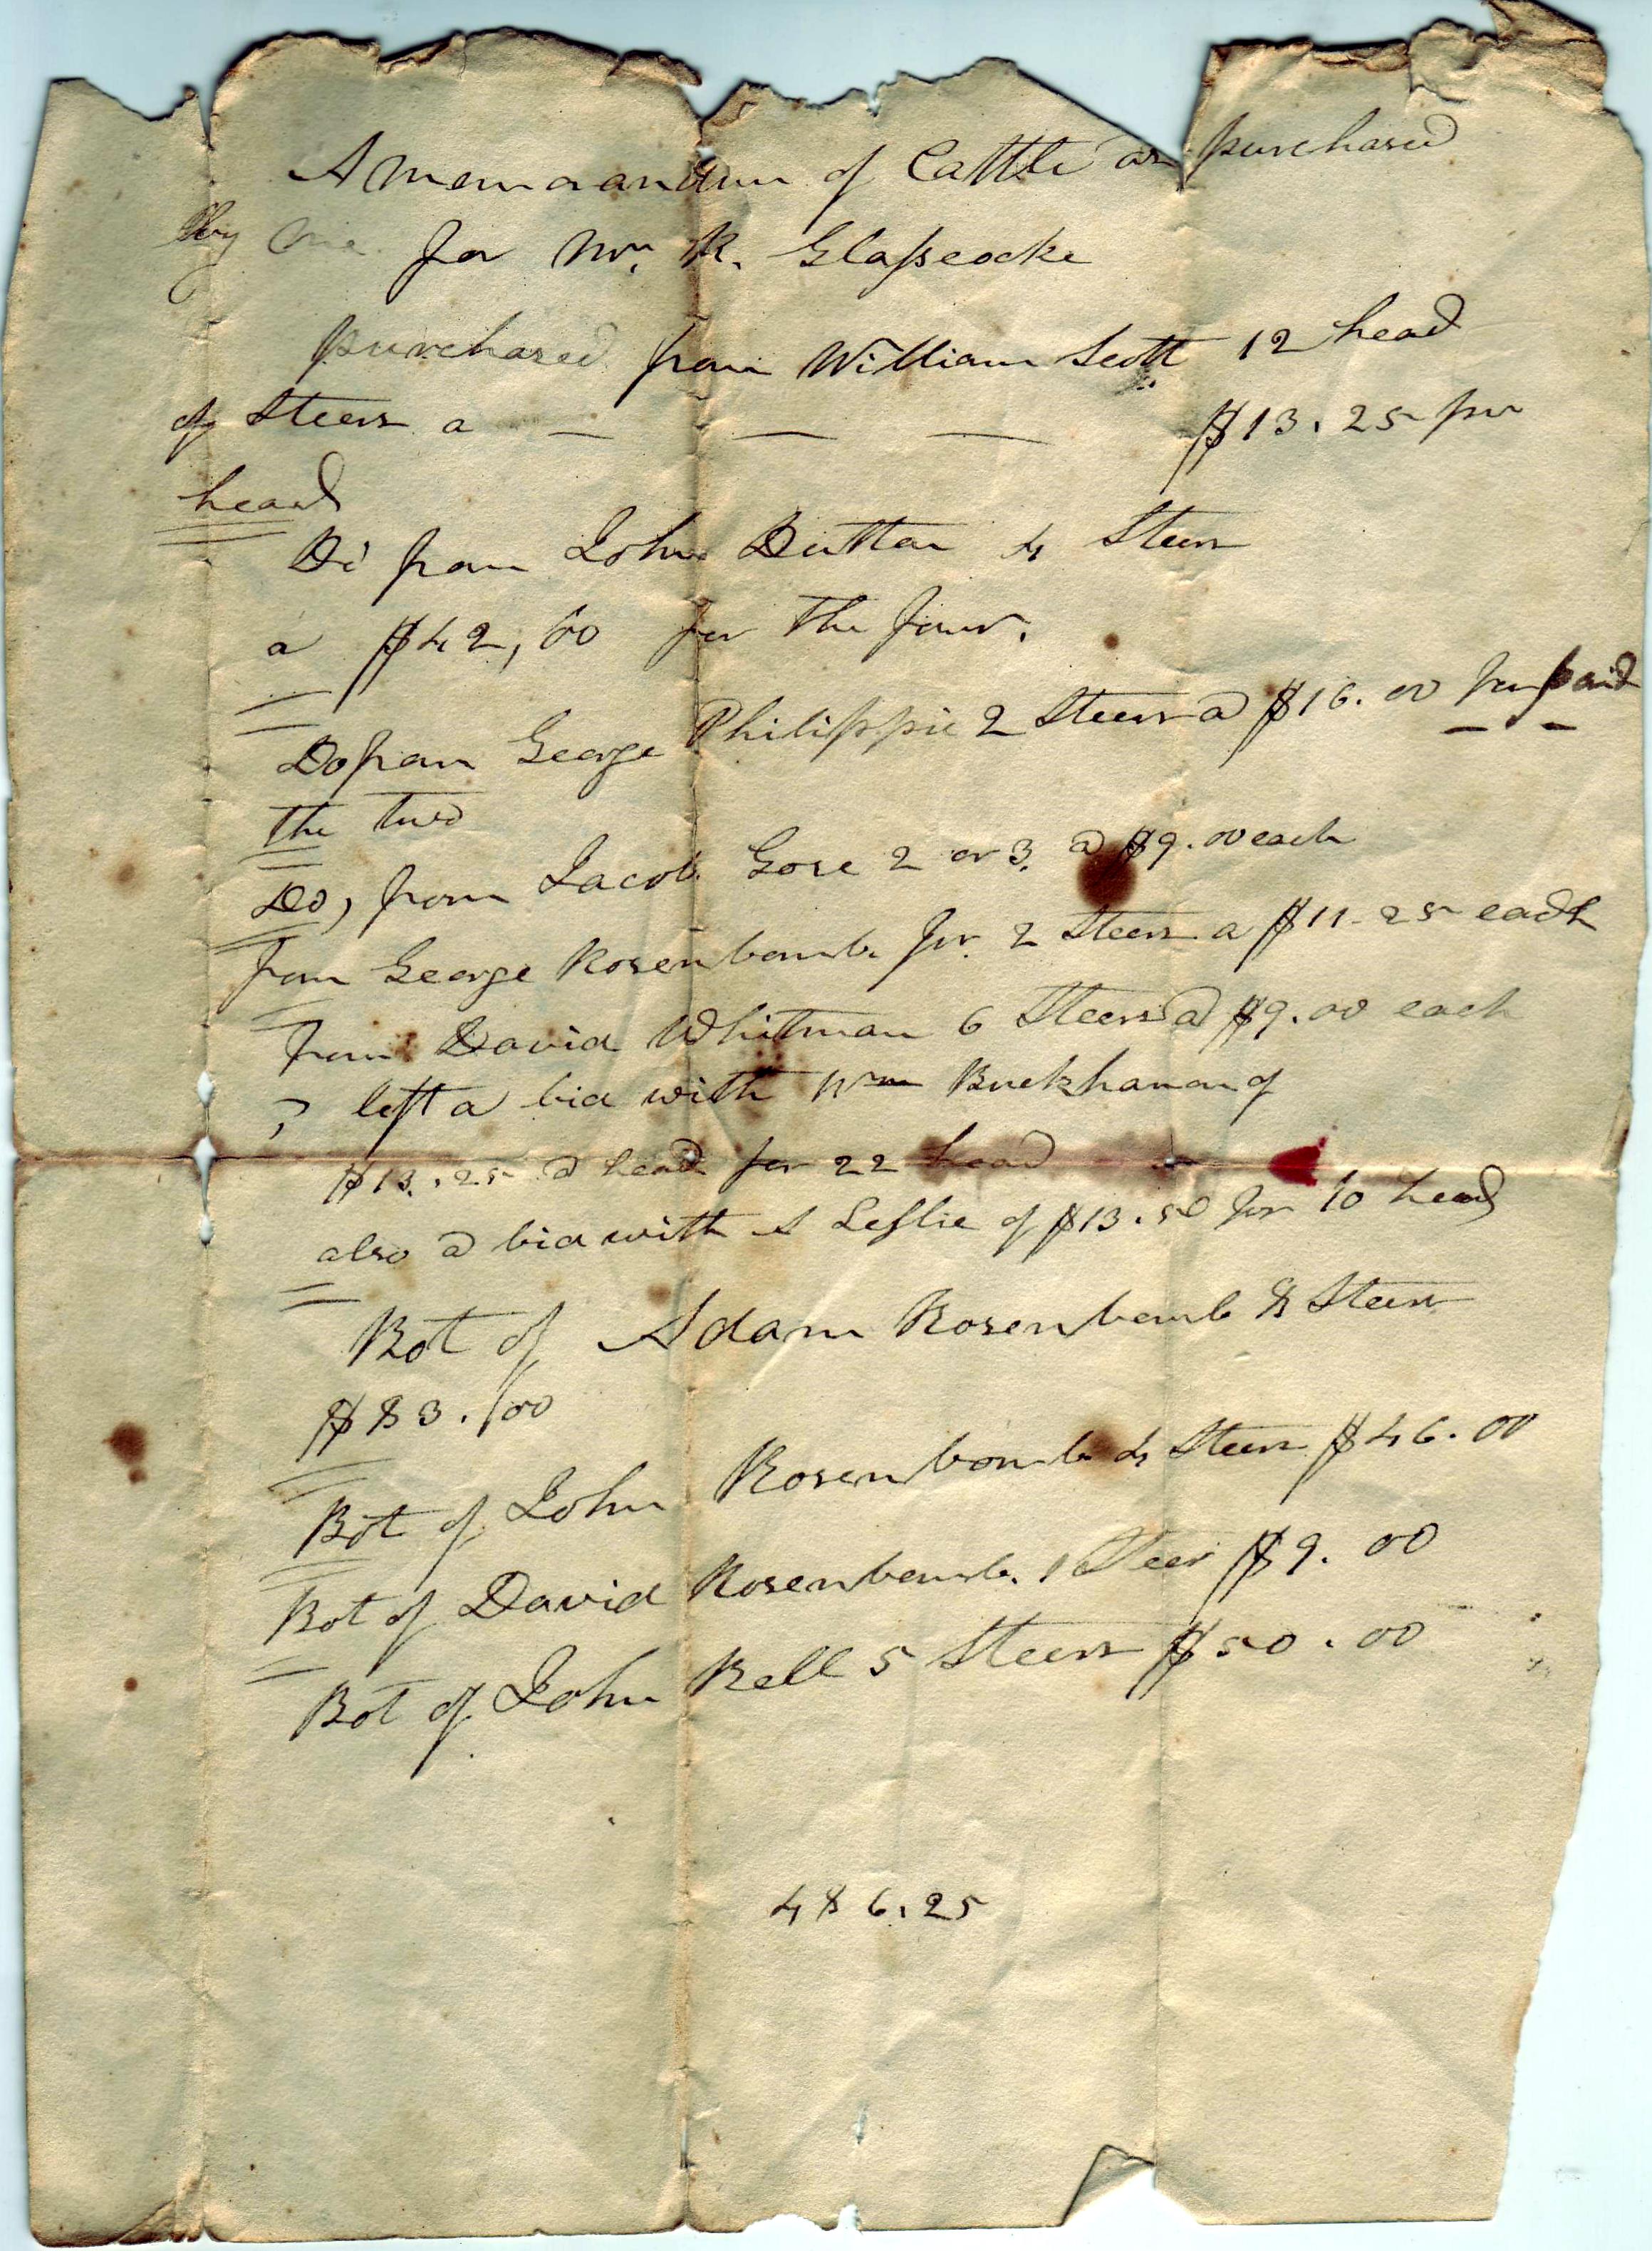 A Memoraandum of Cattle as purchased
by me for Mr. R. Glasscocke
purchased from William Scott 12 head
of Steers a — — — $13.25 pr
head
Do from John Dutton 4 Steers
a $42,60 for the four.
Do from George Philippie 2 Steers a $16.00 for paid
the two
Do, from Jacob Gore 2 or 3 a $9.00 each
from George Rosenbomb Jur. 2 Steers a $11.25 each
from David Whitman 6 Steers a $9.00 each
left a bid with Wm Buckhanan of
$13.25 a head for 22 head
also a bid with A Leslie of $13.50 for 10 head
Bot of Adam Rosenbomb 8 Steers
$83.00
Bot of John Rosenbomb 4 Steers $46.00
Bot of David Rosenbomb 1 Steer $9.00
Bot of John Bell 5 Steers $50.00
486.25